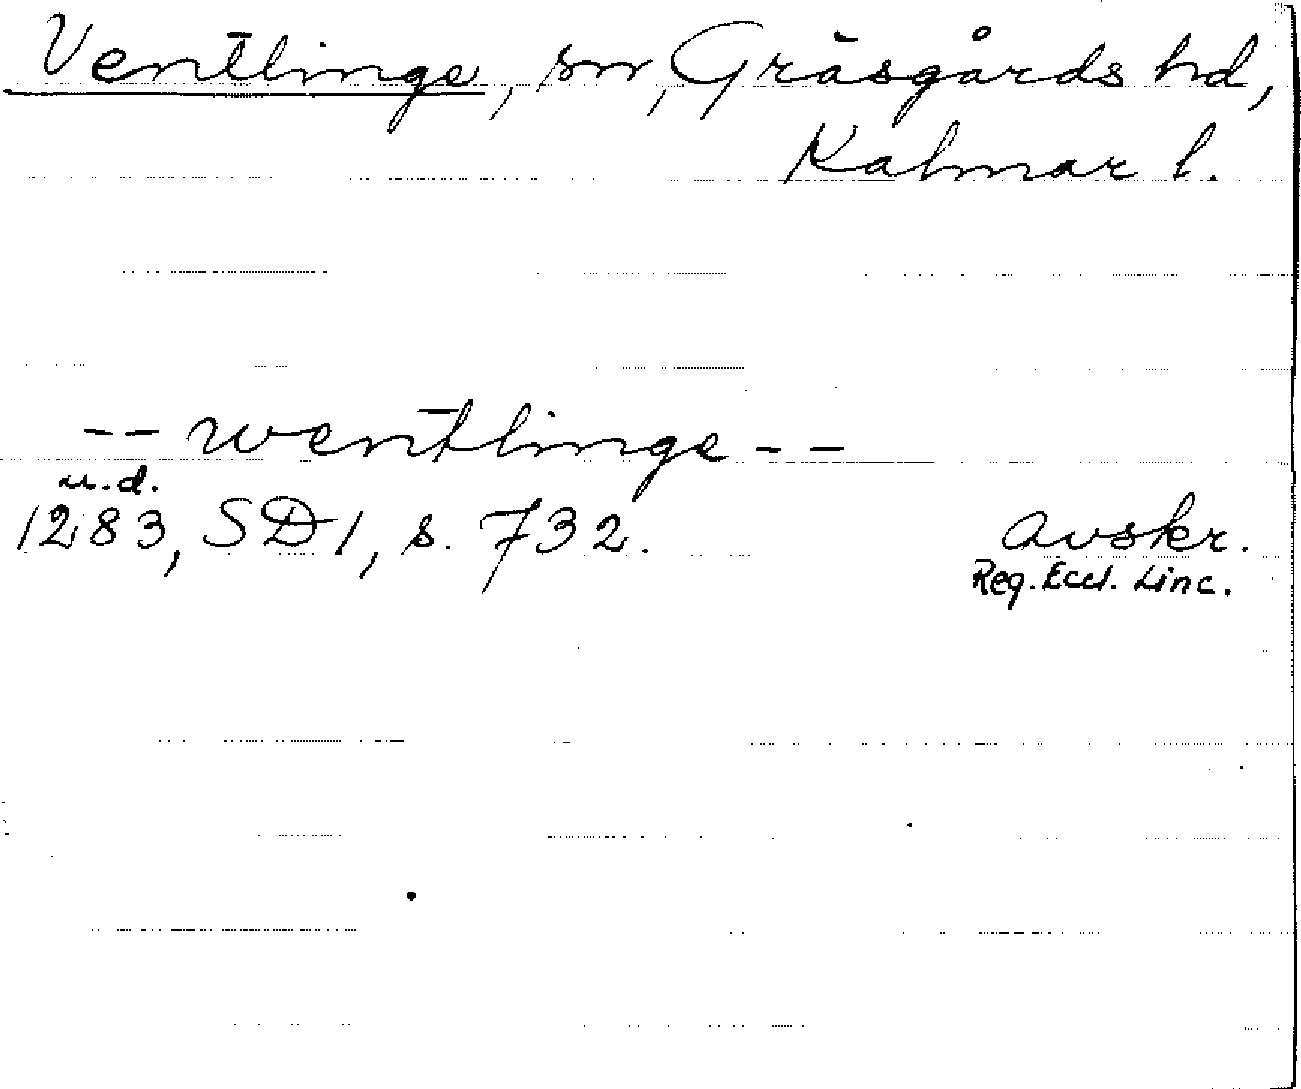 Ventlinge, sn, Gräsgårds hd,
Kalmar l.
-- wentlinge --
u.d.
1283, SD 1, s. 732.
avskr.
Reg. Eccl. Linc.